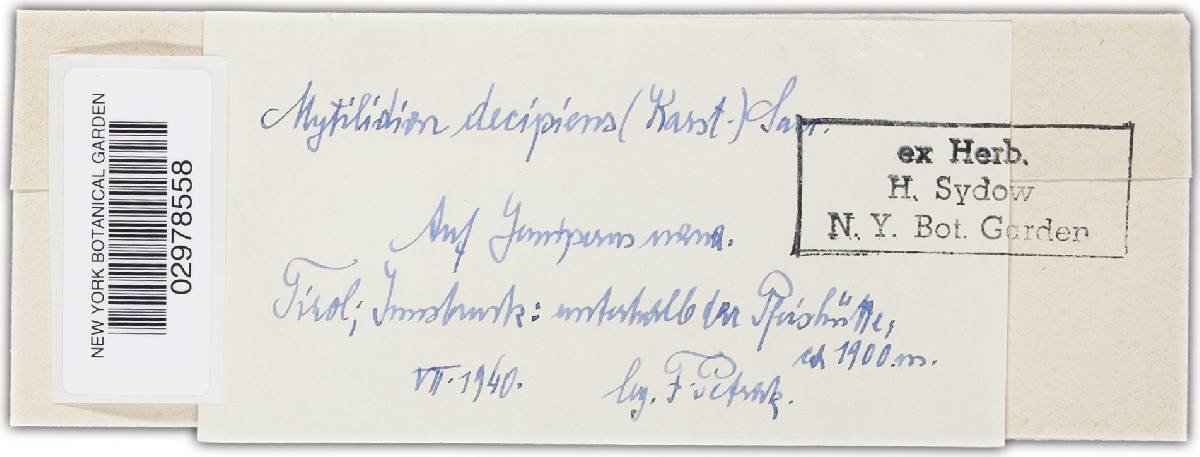 NEW YORK BOTANICAL GARDEN
02978558
Mytilidion decipiens (Karst.) Sacc.
ex Herb.
H. Sydow
N. Y. Bot. Garden
Auf Juniperus nana.
Tirol; Innsbruck: unterhalb der
ca 1900 m.
VII. 1940.
leg. F. Petrak.